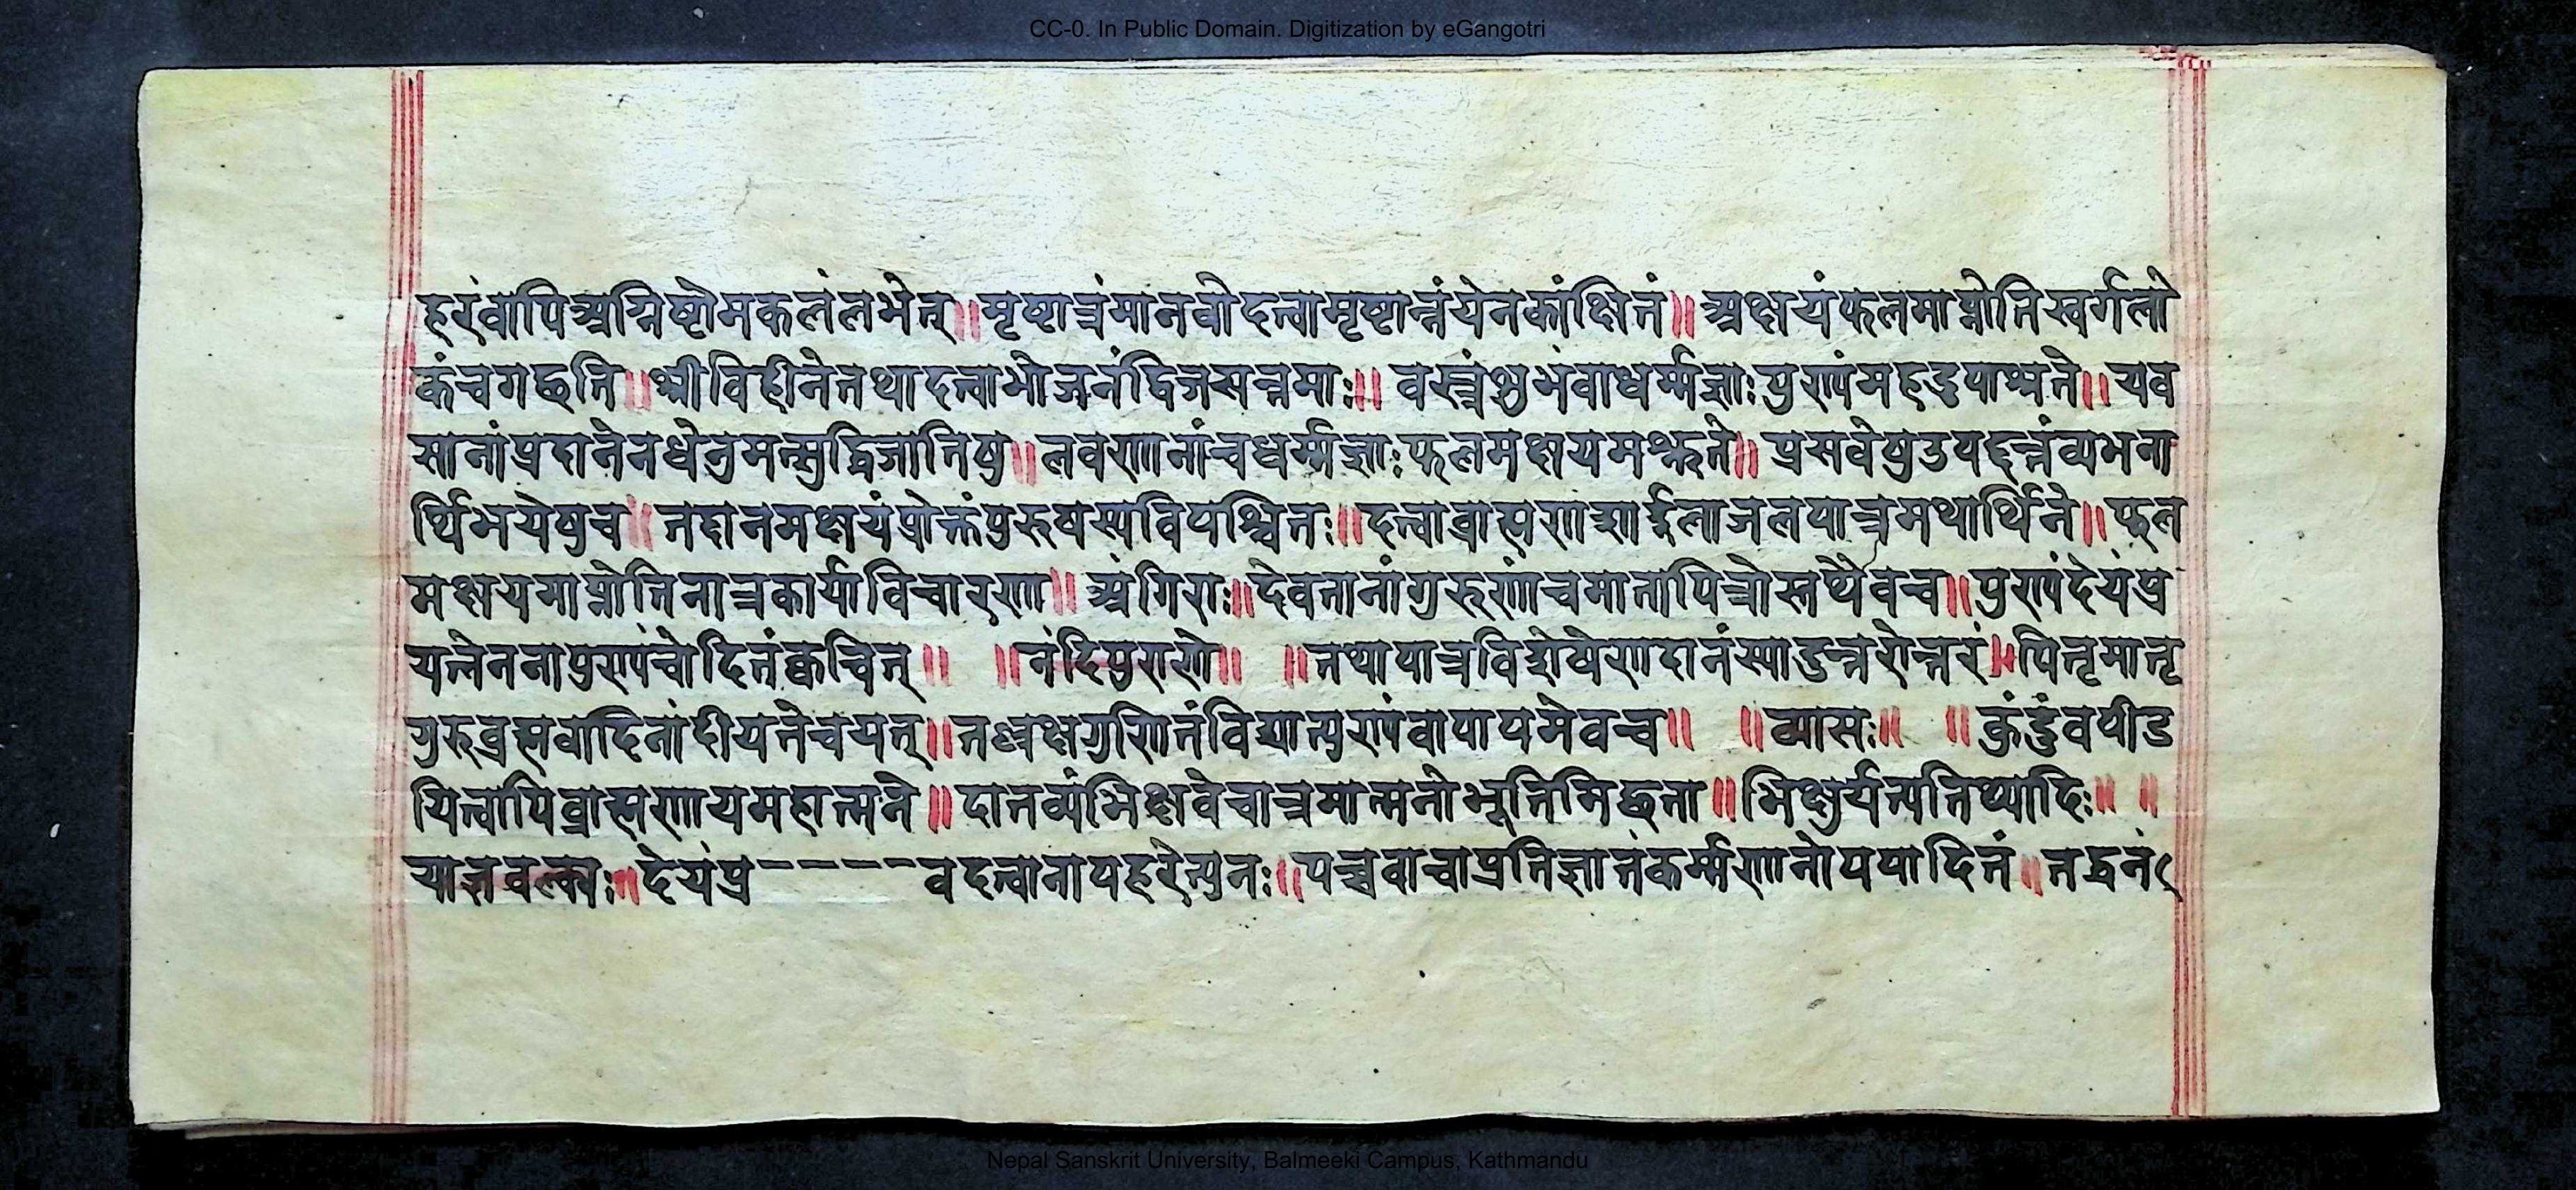 CC-0. In Public Domain. Digitization by eGangotri
हरंवापिअग्निष्टोमफलंलभेत्॥मृष्टान्नंमानवोदत्वामृष्टान्नंयेनकांक्षितं॥अक्षयंफलमाप्नोतिस्वर्गलो
कंचगछति॥श्रीविहीनेतथादत्वाभोजनंद्विजसत्तमाः॥वस्त्रंशुभंवाधर्म्मज्ञाःपुण्यंमहदुपाश्नते॥यव
सानांप्रदानेनधेनुमत्सुद्विजातिषु॥लवणानांचधर्म्मज्ञाःफलमक्षयमश्रुते॥प्रसवेषु
र्थिभयेषुच॥तद्दानमक्षयंप्रोक्तंपुरुषस्यविपश्चितः॥दत्वाब्राह्मणशार्दूलाजलपात्रमथार्थिने॥फल
मक्षयमाप्नोतिनात्रकार्याविचारणा॥अंगिराः॥देवतानांगुरूणांचमातापित्रोस्तथैवच॥पुण्यंदेयंप्र
यत्नेननापुण्यंचोदितंक्वचित्॥ ॥नंदिपुराणे॥ ॥तथापात्रविशेषेणदानंस्यादुत्तरोत्तरं॥पितृमातृ
गुरुब्रह्मवादिनांदीयतेचयत्॥तल्लक्षगुणितंविद्यात्पुण्यंवापापमेवच॥ ॥व्यासः॥ ॥कुंटुंवपीड
यित्वापिब्राह्मणायमहात्मने॥दातव्यंभिक्षवेचान्नमात्मनोभूतिमिछता॥भिक्षुर्यत्यतिथ्यादिः॥ ॥
याज्ञवल्क्यः॥देयंप्र----वदत्वानापहरेत्पुनः॥यच्चवाचाप्रतिज्ञातंकर्म्मणानोपपादितं॥तद्धनं
Nepal Sanskrit University, Balmeeki Campus, Kathmandu